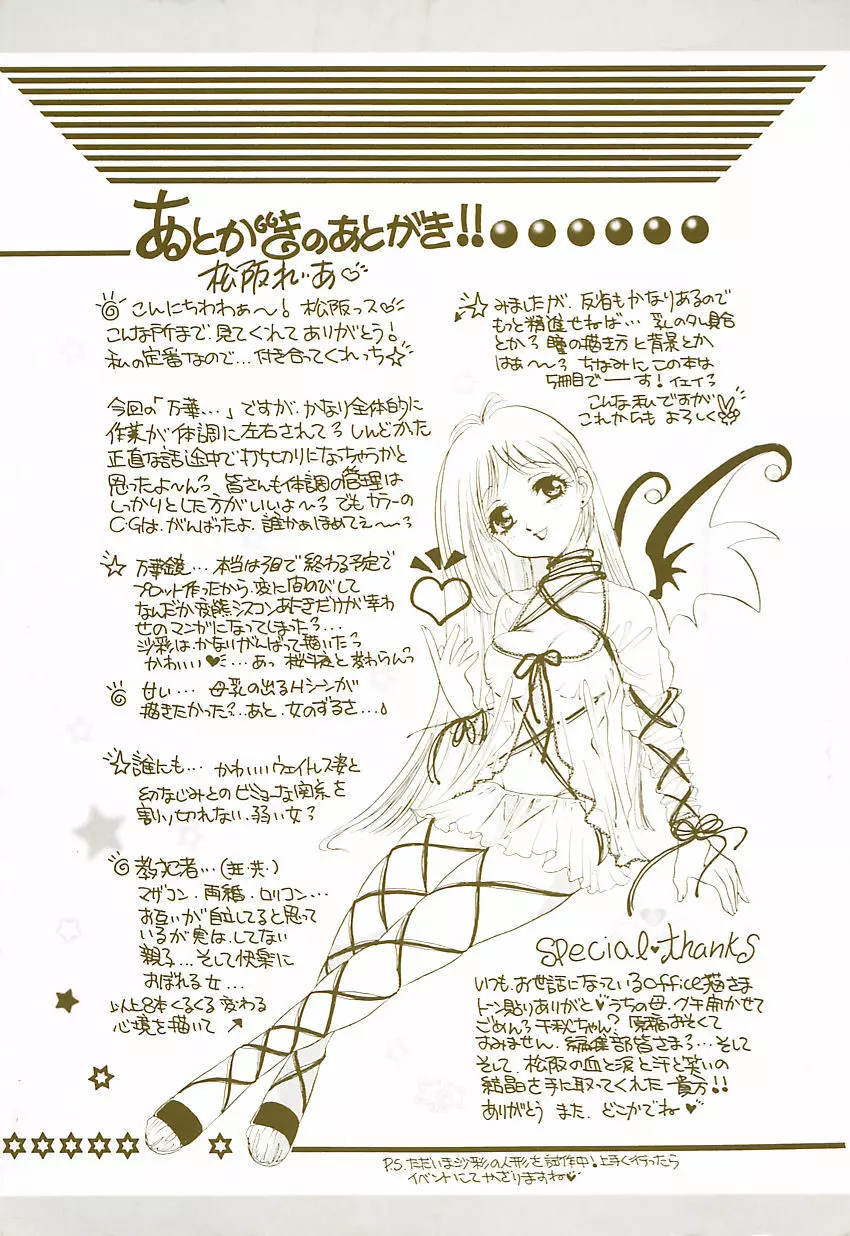 あとがきのあとがき!!
松阪れぃあ♡
こんにちわわぁ〜! 松阪っス♡
こんな所まで、見てくれてありがとう!
私の定番なので…付き合ってくれっち☆
今回の「万華…」ですが、かなり全体的に
作業が体調に左右されてろ しんどかた
正直な話途中で打ち切りになっちゃうかと
思ったよ〜んろ 皆さんも体調の管理は
しっかりとした方がいいょ〜ろ でもカラーの
C・Gは、がんばったよ、誰かぁほめてぇ〜ろ
☆ 万華鏡… 本当は3回で終わる予定で
プロット作ったから、変に間のびして
なんだか変態シスコンあにきだけが幸わ
せのマンガになってしまったろ…
沙彩は、かなりがんばって描いたろ
かわいい♥…あっ 桜斗夜と変わらんっ
甘い… 母乳の出るHシーンが
描きたかった?…あと、女のずるさ…♪
☆誰にも… かわいいウェイトレス姿と
幼なじみとのビミョーな関系を
割り切れない、弱い女ろ
教犯者…(共)
マザコン・再婚・ロリコン…
お互いが自立してると思って
いるが実は、してない
親子…そして快楽に
おぼれる女…
以上8本くるくる変わる
心境を描いて ↗
☆みましたが、反省もかなりあるので
もっと精進せねば… 乳のタレ具合
とかろ 瞳の描き方と背景とか
はぁ〜ろ ちなみにこの本は
5冊目でーす! イェイろ
こんな私ですが
これからも よろしく
special♥thanks
いつも、お世話になっているoffice猫さま
トーン貼りありがと♥うちの母、グチ聞かせて
ごめんろ千秋ちゃん? 原稿おそくて
すみません、編集部皆さまろ… そして
そして、松阪の血と涙と汗と笑いの
結晶を手に取ってくれた 貴方!!
ありがとう また、どこかでね♥
P.S.ただいま沙彩の人形を試作中! 上手く行ったら
イベントにてかざりますね♥